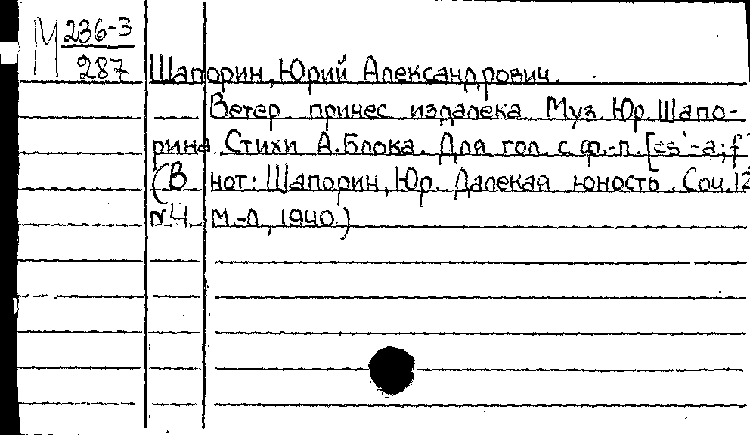 М 236-3
287
Шапорин, Юрий Александрович.
Ветер принес издалека. Муз. Юр. Шапо-
рина. Стихи А. Блока. Для гол. с ф.-п. [es'-a; f
(В нот: Шапорин, Юр. Далекая юность. Соч. 12
№4 М.-Л., 1940.)